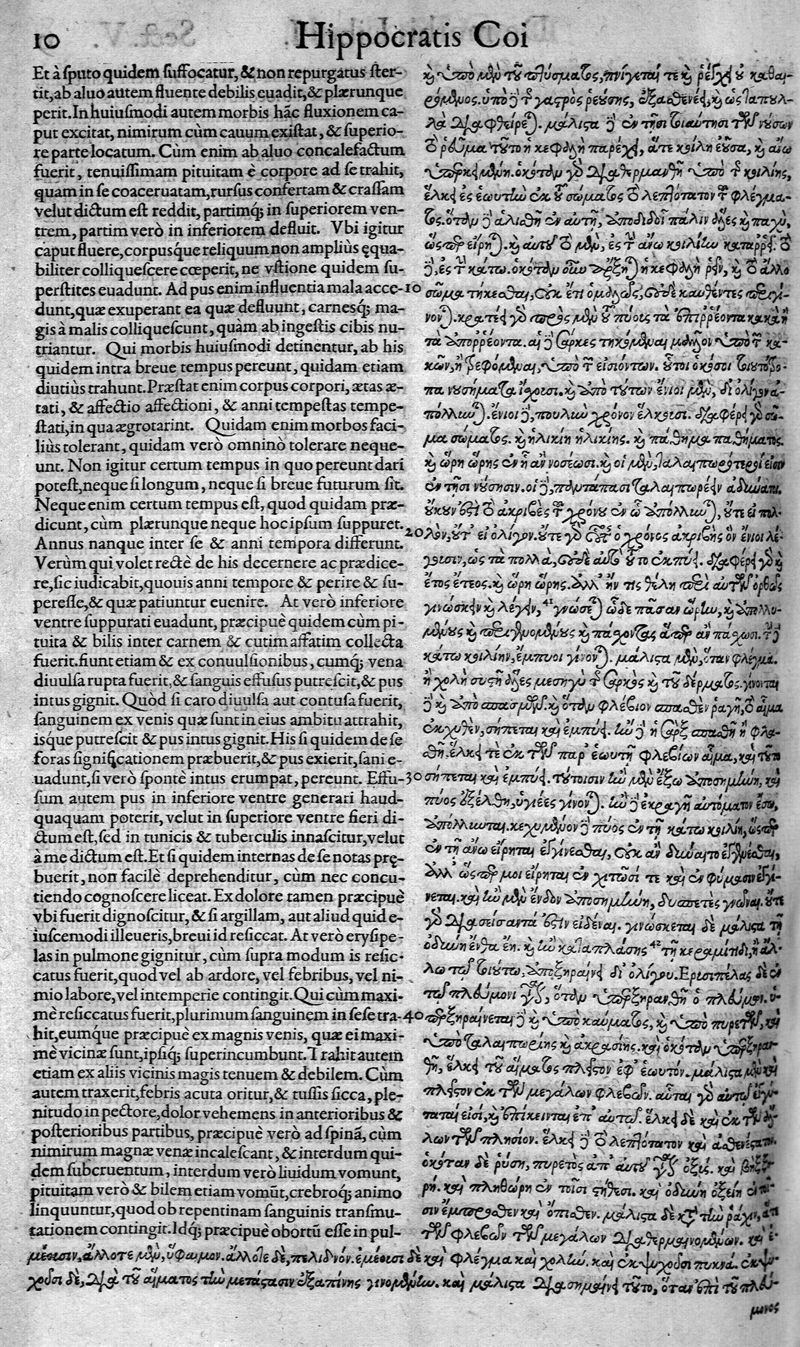 10 Hippocratis Coi
Et à sputo quidem suffocatur, & non repurgatus ster-
tit, ab aluo autem fluente debilis euadit, & plærunque
perit. In huiusmodi autem morbis hãc fluxionem ca-
put excitat, nimirum cùm cauum existat, & superio-
re parte locatum. Cùm enim ab aluo concalefactum
fuerit, tenuissimam pituitam è corpore ad se trahit,
quam in se coaceruatam, rursus confertam & crassam
velut dictum est reddit, partimq; in superiorem ven-
trem, partim verò in inferiorem defluit. Vbi igitur
caput fluere, corpusque reliquum non ampliùs ęqua-
biliter colliquescere cœperit, ne vstione quidem su-
perstites euadunt. Ad pus enim influentia mala acce-
dunt, quæ exuperant ea quæ defluunt, carnesq; ma-
gis à malis colliquescunt, quàm ab ingestis cibis nu-
triantur. Qui morbis huiusmodi detinentur, ab his
quidem intra breue tempus pereunt, quidam etiam
diutiùs trahunt. Præstat enim corpus corpori, ætas æ-
tati, & affectio affectioni, & anni tempestas tempe-
stati, in qua ægrotarint. Quidam enim morbos faci-
liùs tolerant, quidam verò omninò tolerare neque-
unt. Non igitur certum tempus in quo pereunt dari
potest, neque si longum, neque si breue futurum sit.
Neque enim certum tempus est, quod quidam præ-
dicunt, cùm plærunque neque hoc ipsum suppuret.
Annus nanque inter se & anni tempora differunt.
Verùm qui volet rectè de his decernere ac prædice-
re, sic iudicabit, quouis anni tempore & perire & su-
peresse, & quæ patiuntur euenire. At verò inferiore
ventre suppurati euadunt, præcipuè quidem cùm pi-
tuita & bilis inter carnem & cutim affatim collecta
fuerit. fiunt etiam & ex conuulsionibus, cumq; vena
diuulsa rupta fuerit, & sanguis effusus putrescit, & pus
intus gignit. Quòd si caro diuulsa aut contusa fuerit,
sanguinem ex venis quæ sunt in eius ambitu attrahit,
isque putrescit & pus intus gignit. His si quidem de se
foras significationem præbuerit, & pus exierit, sani e-
uadunt, si verò spontè intus erumpat, pereunt. Effu-
sum autem pus in inferiore ventre generari haud-
quaquam poterit, velut in superiore ventre fieri di-
ctum est, sed in tunicis & tuberculis innascitur, velut
à me dictum est. Et si quidem internas de se notas prę-
buerit, non facilè deprehenditur, cùm nec concu-
tiendo cognoscere liceat. Ex dolore tamen præcipuè
vbi fuerit dignoscitur, & si argillam, aut aliud quid e-
iuscemodi illeueris, breui id resiccat. At verò erysipe-
las in pulmone gignitur, cùm supra modum is resic-
catus fuerit, quod vel ab ardore, vel febribus, vel ni-
mio labore, vel intemperie contingit. Qui cùm maxi-
mè resiccatus fuerit, plurimum sanguinem in sese tra-
hit, eumque præcipuè ex magnis venis, quæ ei maxi-
mè vicinæ sunt, ipsiq; superincumbunt. Trahit autem
etiam ex aliis vicinis magis tenuem & debilem. Cùm
autem traxerit, febris acuta oritur, & tussis sicca, ple-
nitudo in pectore, dolor vehemens in anterioribus &
posterioribus partibus, præcipuè verò ad spinã, cùm
nimirum magnæ venæ incalescant, & interdum qui-
dem subcruentum, interdum verò liuidum vomunt,
pituitam verò & bilem etiam vomũt, crebroq; animo
linquuntur, quod ob repentinam sanguinis transmu-
tationem contingit. Idq; præcipuè obortũ esse in pul-
καὶ ὑπὸ μὲν τοῦ πτύσματος, πνίγεταί τε καὶ ῥέγχει οὐ καθαι-
ρόμενος. ὑπὸ δὲ τῆς γαστρὸς ῥεύσης, ἐξασθενέει, καὶ ὡς τὰ πολ-
λὰ διαφθείρεται. μάλιστα δὲ ἐν τῇσι τοιαύτῃσι τῶν νούσων
τὸ ῥεῦμα τοῦτο ἡ κεφαλὴ παρέχει, ἅτε κοίλη ἐοῦσα, καὶ ἄνω
ὁκόταν γὰρ διαθερμανθῇ ὑπὸ τῆς κοιλίης,
ἕλκει ἐς ἑωυτὴν ἐκ τοῦ σώματος τὸ λεπτότατον τοῦ φλέγμα-
τος. ὅταν δὲ ἁλισθῇ ἐν αὐτῇ, ἀποδιδοῖ πάλιν ἁλὲς καὶ παχὺ,
ὥσπερ εἴρηται. καὶ αὐτοῦ τὸ μὲν, ἐς τὴν ἄνω κοιλίην καταρρεῖ. τὸ
δὲ, ἐς τὴν κάτω. ὁκόταν οὖν ἄρξηται ἡ κεφαλὴ ῥεῖν, καὶ τὸ ἄλλο
10 σῶμα τήκεσθαι, οὐκ ἔτι ὁμαλῶς, οὐδὲ καυθέντες περιγί-
νονται. κρατέει γὰρ πρὸς μὲν τοῦ πύους τὰ ἐπιρρέοντα κακὰ ἢ
τὰ ἀπορρέοντα. αἱ δὲ σάρκες τηκόμεναι μᾶλλον ὑπὸ τῶν κα-
κῶν, ἢ τρεφόμεναι, ὑπὸ τῶν εἰσιόντων. οὗτοι ὁκόσοι τοιουτότρο-
πα νουσήματα ἴσχουσι. καὶ ἀπὸ τούτων ἔνιοι μὲν, δι' ὀλίγου ἀ-
πόλλυνται. ἔνιοι δὲ, πουλὺν χρόνον ἕλκουσι. διαφέρει γὰρ σῶ-
μα σώματος. καὶ ἡλικίη ἡλικίης. καὶ πάθημα παθήματος.
καὶ ὥρη ὥρης ἐν ᾗ ἂν νοσέωσι. καὶ οἱ μὲν, ταλαιπωρότεροί εἰσιν
ἐν τῇσι νούσοισιν. οἱ δὲ, παντάπασι ταλαιπωρέειν ἀδύνατοι.
οὔκουν ἔστι τὸ ἀκριβὲς τοῦ χρόνου ἐν ᾧ ἀπόλλυνται, οὔτε εἰ πολ-
20 λὸν, οὔτ' εἰ ὀλίγον. οὔτε γὰρ οὗτος ὁ χρόνος ἀκριβὴς ὃν ἔνιοι λέ-
γουσιν, ὡς τὰ πολλὰ, οὐδὲ αὐτὸ τοῦτο ἐκπυεῖ. διαφέρει γὰρ καὶ
ἔτος ἔτεος. καὶ ὥρη ὥρης. ἀλλ' ἤν τις θέλῃ περὶ αὐτῶν ὀρθῶς
γινώσκειν καὶ λέγειν, γνώσεται ὧδε πᾶσαν ὥρην, καὶ ἀπολλυ-
μένους καὶ περιγινομένους καὶ πάσχοντας ἅπερ ἂν πάσχωσι. τὴν δὲ
κάτω κοιλίην, ἔμπυοι γίνονται. μάλιστα μὲν, ὅταν φλέγμα.
ἢ χολὴ συστῇ ἁλὲς μεσηγὺ τῆς σαρκὸς καὶ τοῦ δέρματος. γίνονται
δὲ καὶ ἀπὸ σπασμῶν. καὶ ὅταν φλέβιον σπασθὲν ῥαγῇ, τὸ αἷμα
ἐκχυθὲν, σήπεται καὶ ἐμπυεῖ. ἢν δὲ ἡ σὰρξ σπασθῇ ἢ φλα-
σθῇ. ἕλκει τε ἐκ τῶν παρ' ἑωυτῇ φλεβίων αἷμα, καὶ τοῦτο
30 σήπεται καὶ ἐμπυεῖ. τούτοισιν ἢν μὲν ἔξω ἀποσημήνῃ, καὶ
πύος ἐξέλθῃ, ὑγιέες γίνονται. ἢν δὲ ἐκραγῇ αὐτόματον ἔσω,
ἀπόλλυνται. κεχυμένον δὲ πύος ἐν τῇ κάτω κοιλίῃ, ὥσπερ
ἐν τῇ ἄνω εἴρηται ἐγγίνεσθαι, οὐκ ἂν δύναιτο
ἀλλ' ὥσπερ μοι εἴρηται ἐν χιτῶσί τε καὶ ἐν φύμασιν ἐγγί-
νεται. καὶ ἢν μὲν ἔνδον ἀποσημήνῃ, δυσπετὲς γνῶναι. οὔτε
γὰρ διασείσαντά ἐστιν εἰδέναι. γινώσκεται δὲ μάλιστα τῇ
ὀδύνῃ ἔνθα ἔῃ. καὶ ἢν καταπλάσῃς τῇ κεραμίτιδι, ἢ ἄλ-
λῳ τῳ τοιούτῳ, ἀποξηραίνει δι' ὀλίγου. Ἐρυσίπελας δὲ ἐν
τῷ πλεύμονι γίνεται, ὅταν ὑπερξηρανθῇ ὁ πλεύμων. ὑ-
40 περξηραίνεται δὲ καὶ ὑπὸ καύματος, καὶ ὑπὸ πυρετῶν, καὶ
ὑπὸ ταλαιπωρίης καὶ ἀκρασίης. καὶ ὁκόταν ὑπερξηραν-
θῇ, ἕλκει τοῦ αἵματος πλεῖον ἐφ' ἑωυτόν. μάλιστα μὲν καὶ
πλεῖστον ἐκ τῶν μεγάλων φλεβῶν. αὗται γὰρ αὐτοῦ ἐγγύ-
ταταί εἰσι, καὶ ἐπίκεινται ἐπ' αὐτῷ. ἕλκει δὲ καὶ ἐκ τῶν ἄλ-
λων τῶν πλησίον. ἕλκει δὲ τὸ λεπτότατον καὶ ἀσθενέστατον.
ὁκόταν δὲ ῥύσῃ, πυρετὸς ἀπ' αὐτοῦ γίνεται ὀξύς. καὶ βὴξ ξη-
ρή. καὶ πληθώρη ἐν τοῖσι στήθεσι. καὶ ὀδύνη ὀξείη ἐν τοῖ-
σιν ἔμπροσθεν καὶ ὄπισθεν. μάλιστα δὲ κατὰ τὴν ῥάχιν, ἅτε
τῶν φλεβῶν τῶν μεγάλων διαθερμαινομένων. καὶ ἐ-
μέουσιν, ἄλλοτε μὲν, ὕφαιμον. ἄλλοτε δὲ, πελιδνόν. ἐμέουσι δὲ καὶ φλέγμα καὶ χολήν. καὶ ἐκψύχουσι πυκνά. ἐκψύ-
χουσι δὲ, διὰ τοῦ αἵματος τὴν μετάστασιν ἐξαπίνης γινομένην. καὶ μάλιστα διασημαίνει τοῦτο, ὅταν ἐπὶ τοῦ πλεύ-
μονος